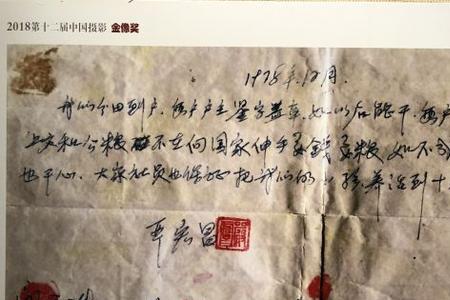 2018第十二届中国摄影 金像奖
1978年12月.
我们分田到户,每户户主签字盖章,如以后能干,每户
上交和公粮 不在向国家伸手要钱要粮,如不
也干心,大家社员也保证把我们的小孩养活到十
严宏昌